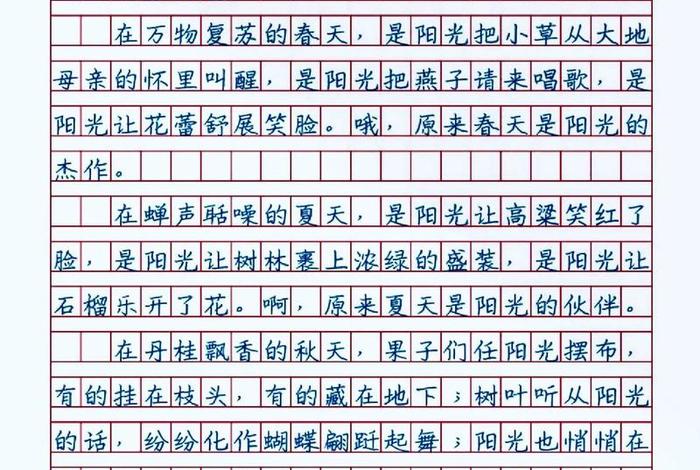 在万物复苏的春天，是阳光把小草从大地
母亲的怀里叫醒，是阳光把燕子请来唱歌，是
阳光让花蕾舒展笑脸。哦，原来春天是阳光的
杰作。
在蝉声聒噪的夏天，是阳光让高粱笑红了
脸，是阳光让树林裹上浓绿的盛装，是阳光让
石榴乐开了花。啊，原来夏天是阳光的伙伴。
在丹桂飘香的秋天，果子们任阳光摆布，
有的挂在枝头，有的藏在地下；树叶听从阳光
的话，纷纷化作蝴蝶翩跹起舞；阳光也悄悄在